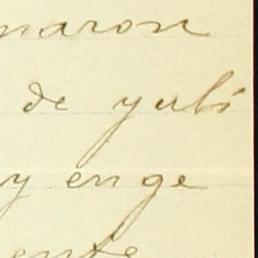 maron
de yubi
y en ge
ente